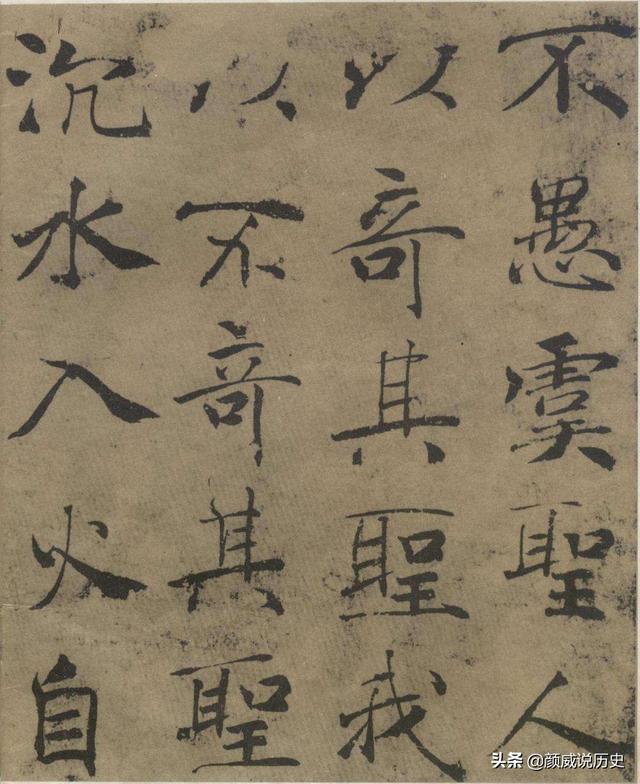 不愚虞聖人
以竒其聖我
以不竒其聖
沉水入火自
头条 @颜威说历史